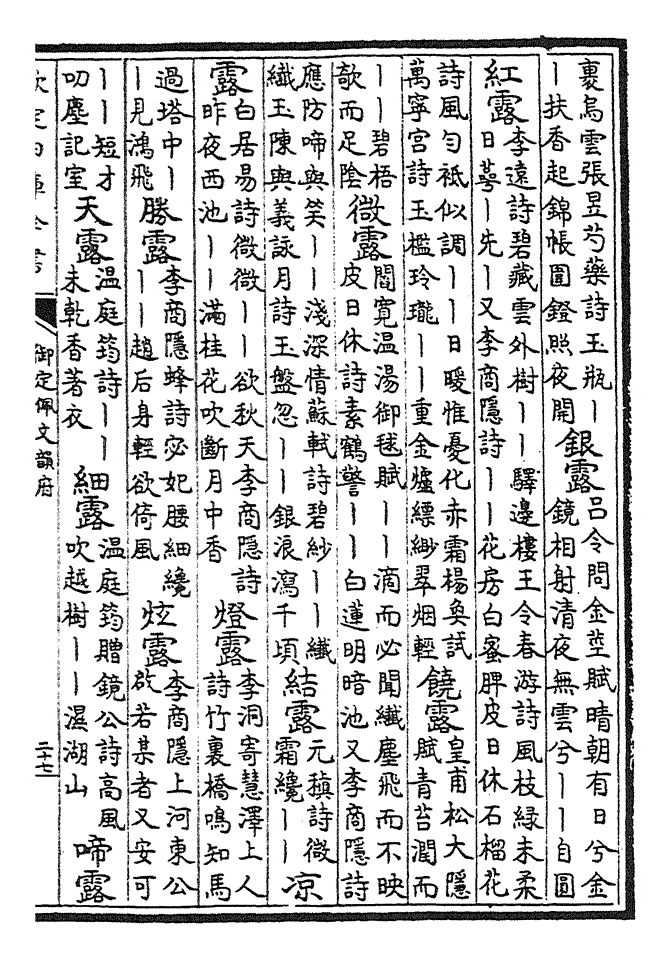 裹烏雲張昱芍藥詩玉瓶丨
丨扶香起錦帳圓鐙照夜開
銀露
呂令問金莖賦晴朝有日兮金
鏡相射清夜無雲兮丨丨自圓
紅露
李遠詩碧藏雲外樹丨丨驛邊樓王令春游詩風枝緑未柔
日萼丨先丨又李商隱詩丨丨花房白蜜脾皮日休石榴花
詩風勻祗似調丨丨日暖惟憂化赤霜楊奐試
萬寧宮詩玉檻玲瓏丨丨重金爐縹緲翠烟輕
饒露
皇甫松大隱
賦青苔潤而
丨丨碧梧
欹而足陰
微露
閻寛温湯御毬賦丨丨滴而必聞纖塵飛而不映
皮日休詩素鶴警丨丨白蓮明暗池又李商隱詩
應防啼與笑丨丨淺深情蘇軾詩碧紗丨丨纖
纖玉陳與義詠月詩玉盤忽丨丨銀浪瀉千頃
結露
元稹詩微
霜纔丨丨
凉
露
白居易詩微微丨丨欲秋天李商隱詩
昨夜西池丨丨滿桂花吹斷月中香
燈露
李洞寄慧澤上人
詩竹裏橋鳴知馬
過塔中丨
丨見鴻飛
勝露
李商隱蜂詩宓妃腰細纔
丨丨趙后身輕欲倚風
炫露
李商隱上河東公
啟若某者又安可
丨丨短才
叨塵記室
天露
温庭筠詩丨丨
未乾香著衣
細露
温庭筠贈鏡公詩高風
吹越樹丨丨濕湖山
啼露
欽定四庫全書
御定佩文韻府
二十七